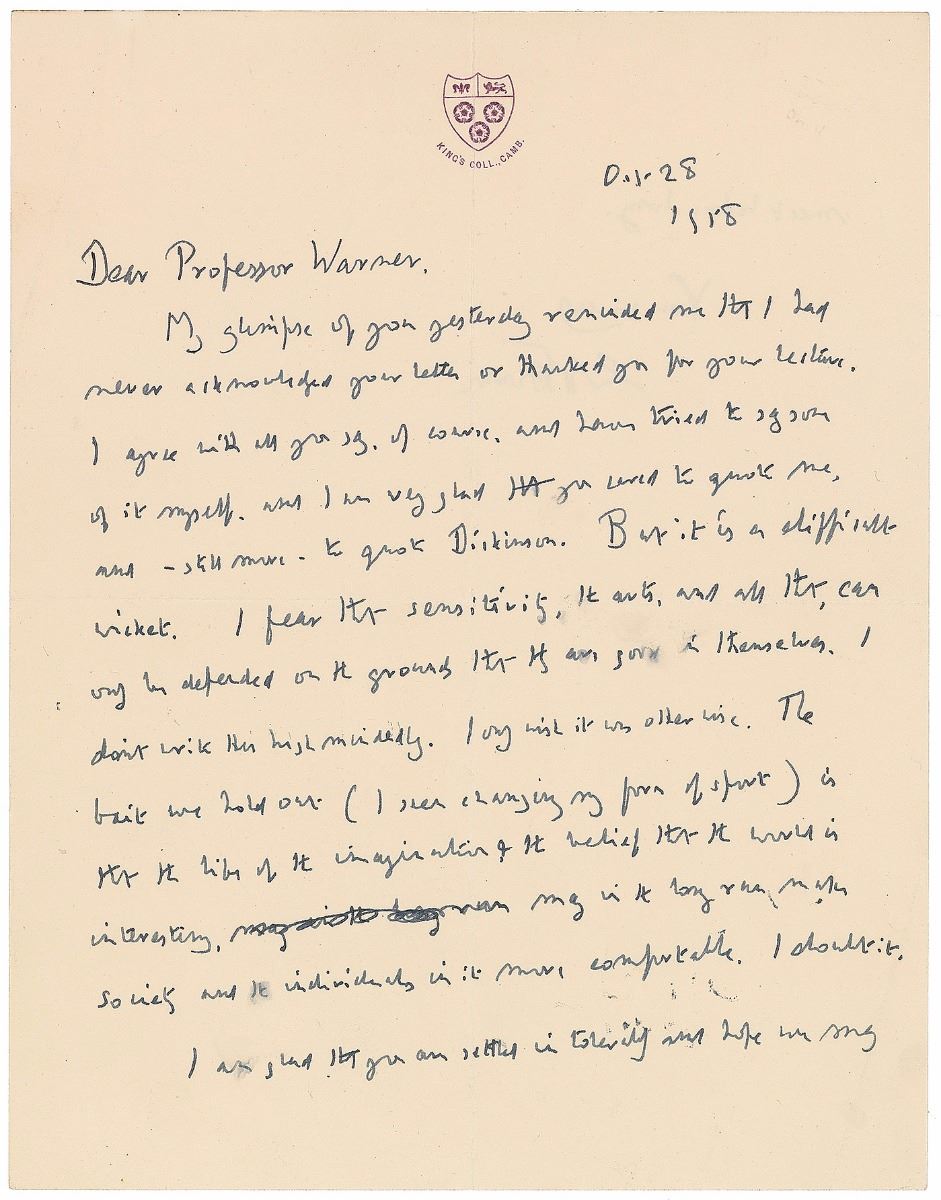 KING'S COLL., CAMB.
Oct 28
1958
Dear Professor Warner,
My glimpse of you yesterday reminded me tht I had
never acknowledged your letter or thanked you for your lecture.
I agree with all you say, of course, and have tried to say some
of it myself, and I am very glad tht you cared to quote me,
and - still more - to quote Dickinson. But it is a difficult
wicket. I fear tht sensitivity, the arts, and all tht, can
only be defended on the grounds tht they are good in themselves. I
don't write this high mindedly. I only wish it was otherwise. The
bait we hold out (I seem changing my form of sport) is
tht the life of the imagination, & the belief tht the world is
interesting, may in the long run make
society and the individuals in it more comfortable. I doubt it.
I am glad tht you are settled in tolerably and hope we may